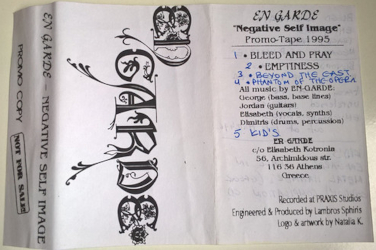 EN GARDE - NEGATIVE SELF IMAGE
PROMO COPY
NOT FOR SALE!
EN GARDE
EN GARDE
"Negative Self Image"
Promo-Tape 1995
1 • BLEED AND PRAY
2 • EMPTINESS
3 • BEYOND THE EAST
4 • PHANTOM OF THE OPERA
All music by EN-GARDE:
George (bass, base lines)
Jordan (guitars)
Elisabeth (vocals, synths)
Dimitris (drums, percussion)
5 KID'S
EN GARDE
c/o Elisabeth Kotronia
56, Archimidous str.
116 36 Athens
Greece.
Recorded at PRAXIS Studios
Engineered & Produced by Lambros Sphiris
Logo & artwork by Natalia K.